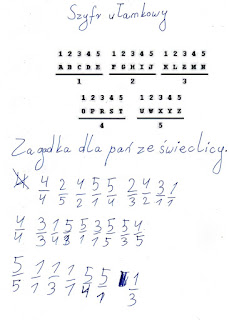 Szyfr ułamkowy
1 2 3 4 5 1 2 3 4 5 1 2 3 4 5
A B C D E F G H I J K L Ł M N
1 2 3
1 2 3 4 5 1 2 3 4 5
O P R S T U W X Y Z
4 5
Zagadka dla pań ze świeclicy.
4 2 4 5 5 2 4 3 1
4 5 2 1 4 3 2 1 1
4 3 1 5 5 3 5 5 4
4 3 4 3 1 1 5 3 5
5 1 1 1 5 5 1
5 1 3 1 4 1 3